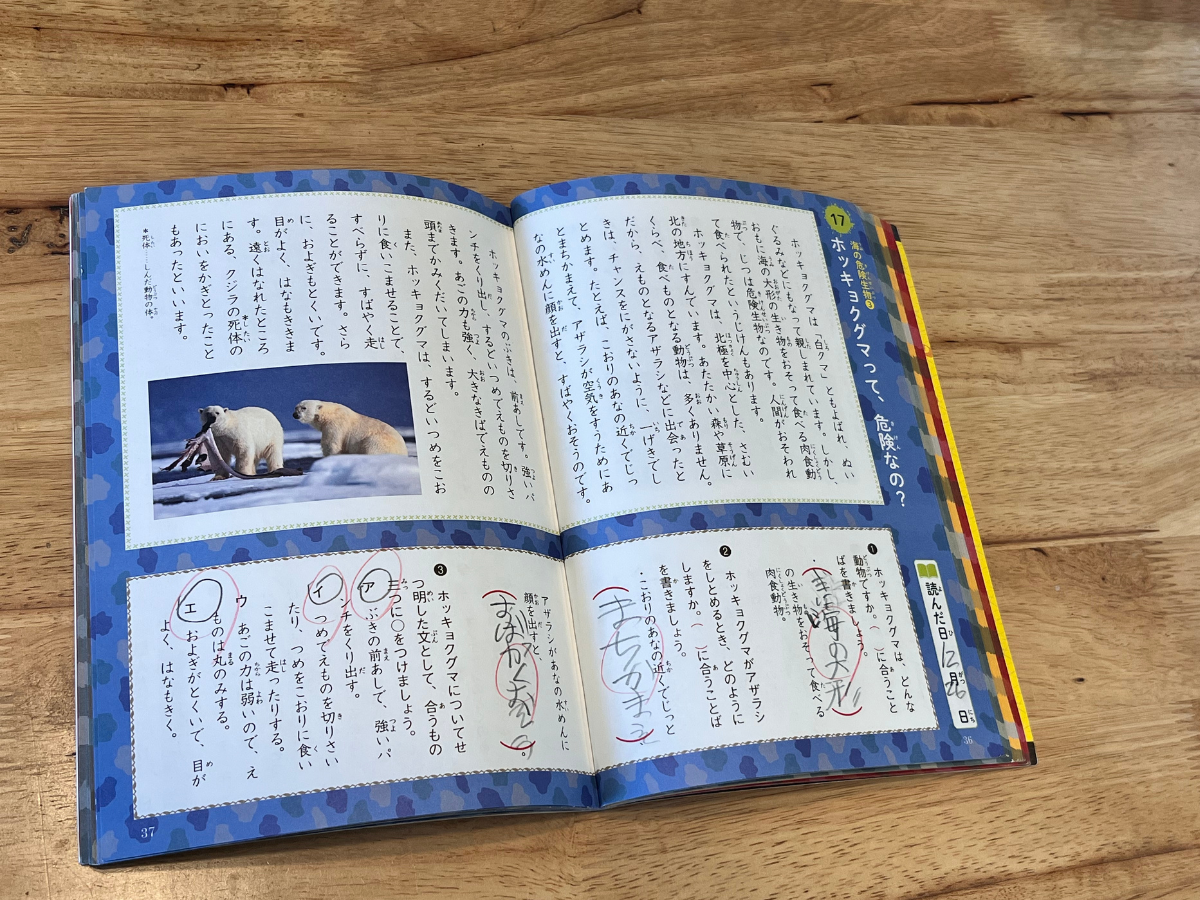 17
海の危険生物❸
ホッキョクグマって、危険なの？
ホッキョクグマは、「白クマ」ともよばれ、ぬい
ぐるみなどにもなって親しまれています。しかし、
おもに海の大形の生き物をおそって食べる肉食動
物で、じつは危険生物なのです。人間がおそわれ
て食べられたというじけんもあります。
ホッキョクグマは、北極を中心とした、さむい
北の地方にすんでいます。あたたかい森や草原に
くらべ、食べものとなる動物は、多くありません。
だから、えものとなるアザラシなどに出会ったと
きは、チャンスをにがさないように、一げきでし
とめます。たとえば、こおりのあなの近くでじっ
とまちかまえて、アザラシが空気をすうためにあ
なの水めんに顔を出すと、すばやくおそうのです。
ホッキョクグマのぶきは、前あしです。強いパ
ンチをくり出し、するどいつめでえものを切りさ
きます。あごの力も強く、大きなきばでえものの
頭までかみくだいてしまいます。
また、ホッキョクグマは、するどいつめをこお
りに食いこませることで、
すべらずに、すばやく走
ることができます。さら
に、およぎもとくいです。
目がよく、はなもききま
す。遠くはなれたところ
にある、クジラの死体の
においをかぎとったこと
もあったといいます。
*死体……しんだ動物の体。
読んだ日 12月 26日
❶ ホッキョクグマは、どんな
動物ですか。（ ）に合うこと
ばを書きましょう。
・（海の大形）
の生き物をおそって食べる
肉食動物。
❷ ホッキョクグマがアザラシ
をしとめるとき、どのように
しますか。（ ）に合うことば
を書きましょう。
・こおりのあなの近くでじっと
（まちかまえ）
アザラシがあなの水めんに
顔を出すと、
❸ ホッキョクグマについてせ
つ明した文として、合うもの
三つに○をつけましょう。
ア ぶきの前あしで、強いパ
ンチをくり出す。
イ つめでえものを切りさい
たり、つめをこおりに食い
こませて走ったりする。
ウ あごの力は弱いので、え
ものは丸のみする。
エ およぎがとくいで、目が
よく、はなもきく。
36
37